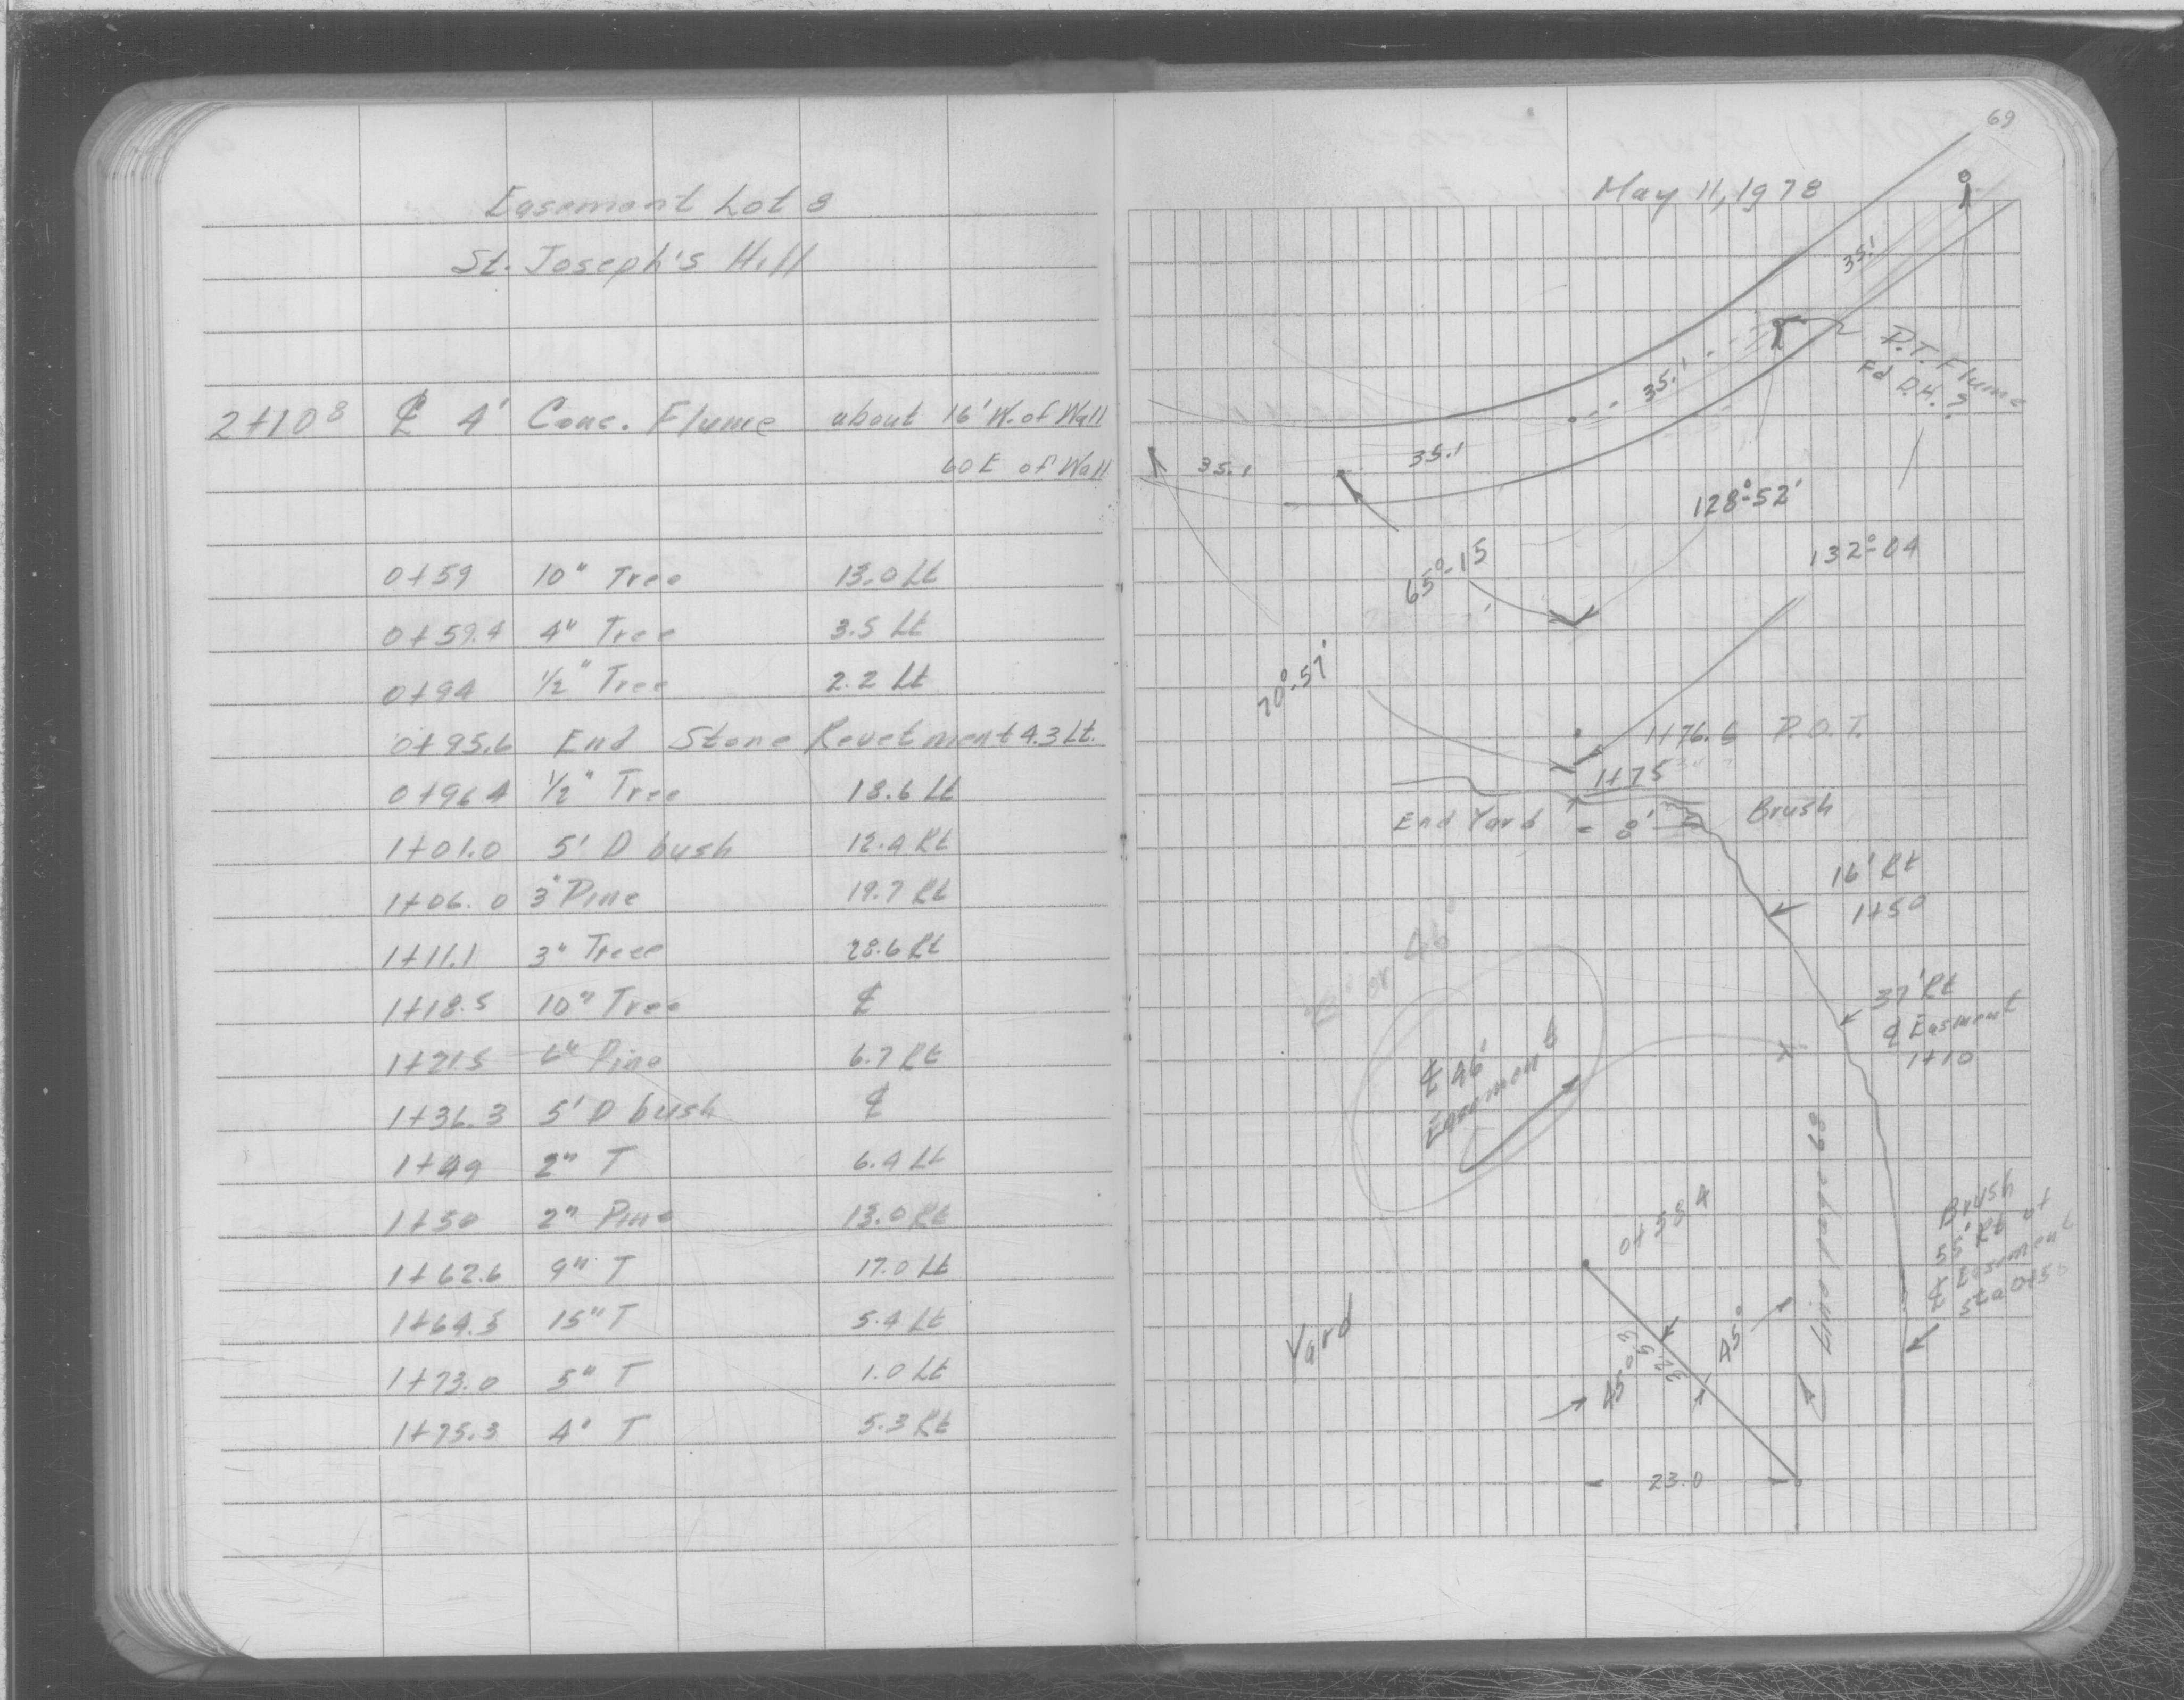 Easement Lot 8
St. Joseph's Hill
2+10⁸ ℄ 4' Conc. Flume about 16' W. of Wall
60 E of Wall
0+59 10" Tree 13.0 Lt
0+59.4 4" Tree 3.5 Lt
0+94 1/2" Tree 2.2 Lt
0+95.6 End Stone Revetment 4.3 Lt.
0+96.4 1/2" Tree 18.6 Lt
1+01.0 5' D bush 12.4 Rt
1+06.0 3" Pine 19.7 Rt
1+11.1 3" Treee 28.6 Rt
1+18.5 10" Tree ℄
1+21.5 6" Pine 6.7 Rt
1+36.3 5' D bush ℄
1+49 2" T 6.4 Lt
1+50 2" Pine 13.0 Rt
1+62.6 9" T 17.0 Lt
1+64.5 15" T 5.4 Lt
1+73.0 5" T 1.0 Lt
1+75.3 4" T 5.3 Rt
69
May 11, 1978
35.1
35.1
P.T. Flume
Fd D.H. ?
35.1
35.1
128°-52'
132°-04
65°-15
70°-57'
1+76.6 P.O.T.
1+75
End Yard = 8'
Brush
16' Rt
1+50
37' Rt
℄ Easment
1+10
or 46
℄ 46'
Easement
0+58 4
Line page 68
Brush
55' Rt of
℄ Easement
Sta 0+50
Yard
45°
32.53
45°
23.0